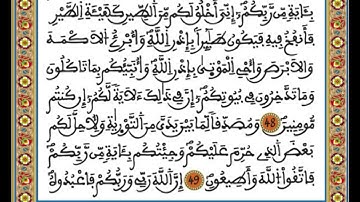 بِـَٔايَةٖ مِّن رَّبِّكُمُۥٓ إِنِّيَ أَخْلُقُ لَكُم مِّنَ اَلطِّينِ كَهَيْـَٔةِ اِلطَّيْرِ
فَأَنفُخُ فِيهِ فَيَكُونُ طَٰٓئِراَۢ بِإِذْنِ اِللَّهِ وَأُبْرِۓُ اُلَاكْمَهَ
وَالَابْرَصَ وَأُحْيِ اِلْمَوْتَىٰ بِإِذْنِ اِللَّهِ وَأُنَبِّئُكُم بِمَا تَاكُلُونَ
وَمَا تَدَّخِرُونَ فِي بُيُوتِكُمُۥٓ إِنَّ فِي ذَٰلِكَ ءَلَايَةٗ لَّكُمُۥٓ إِن كُنتُم
مُّومِنِينَ 48 وَمُصَدِّقاٗ لِّمَا بَيْنَ يَدَيَّ مِنَ اَلتَّوْر۪يٰةِ وَلِأُحِلَّ لَكُم
بَعْضَ اَلذِي حُرِّمَ عَلَيْكُمْ وَجِئْتُكُم بِـَٔايَةٖ مِّن رَّبِّكُمْ
فَاتَّقُواْ اُللَّهَ وَأَطِيعُونِ 49 إِنَّ اَللَّهَ رَبِّي وَرَبُّكُمْ فَاعْبُدُوهُ